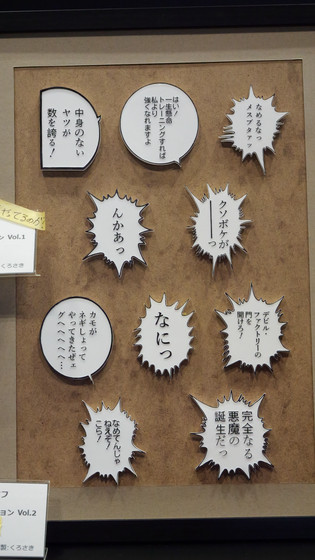 なめるなっ
メスブタァァ
はい!
一生懸命
トレーニングすれば
私より
強くなれますよ
中身のない
ヤツが
数を誇る!
クソボケが
――っ
んかあっ
デビル・
ファクトリーの
門を
開けろ!
なにっ
カモが
ネギしょって
やってきたぜェ
グへへへへ…
完全なる
悪魔の
誕生だっ
なめてんじゃ
ねえぞ!
こら!
Vol.1
くろさき
フ
ョン Vol.2
製:くろさき